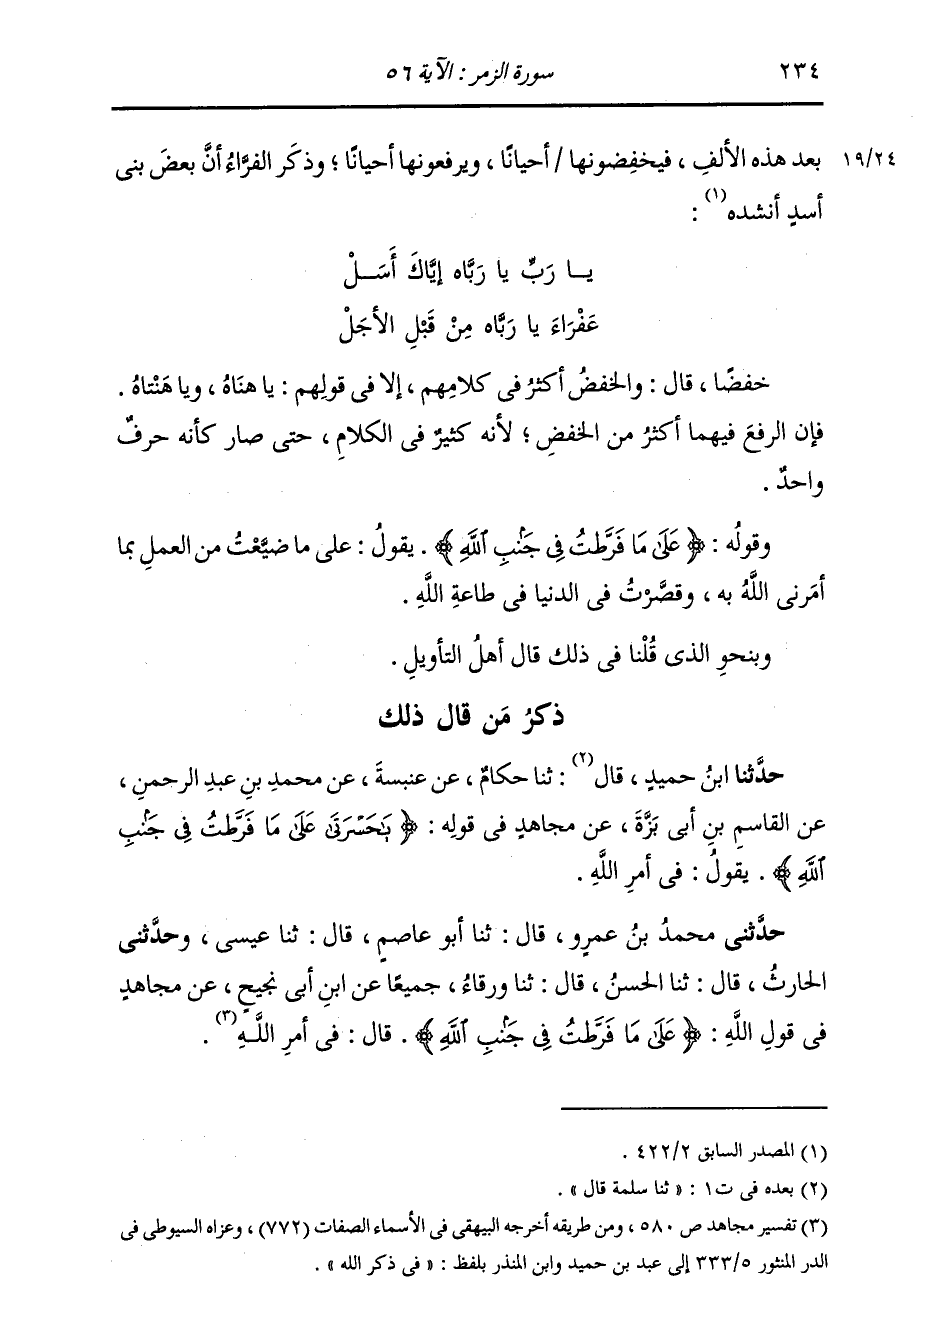 ٢٣٤ سورة الزمر : الآية ٥٦
١٩/٢٤ بعد هذه الألفِ ، فيخفِضونها / أحيانًا ، ويرفعونها أحيانًا ؛ وذكَر الفرَّاءُ أنَّ بعضَ بنى
أسدٍ أنشده(١) :
يــا رَبِّ يا رَبَّاه إيَّاكَ أَسَــلْ
عَفْرَاءَ يا رَبَّاه مِنْ قَبْلِ الأجَلْ
خفضًا ، قال : والخفضُ أكثرُ فى كلامِهم ، إلا فى قولِهم : يا هنَاهُ ، ويا هَنْتاهُ .
فإن الرفعَ فيهما أكثرُ من الخفضِ ؛ لأنه كثيرٌ فى الكلامِ ، حتى صار كأنه حرفٌ
واحدٌ .
وقولُه : ﴿ عَلَىٰ مَا فَرَّطتُ فِى جَنۢبِ ٱللَّهِ ﴾ . يقولُ : على ما ضيَّعْتُ من العملِ بما
أمَرنى اللَّهُ به ، وقصَّرْتُ فى الدنيا فى طاعةِ اللَّهِ .
وبنحوِ الذى قُلْنا فى ذلك قال أهلُ التأويلِ .
ذكرُ مَن قال ذلك
حدَّثنا ابنُ حميدٍ ، قال(٢) : ثنا حكامٌ ، عن عنبسةَ ، عن محمدِ بنِ عبدِ الرحمنِ ،
عن القاسمِ بنِ أبى بَزَّةَ ، عن مجاهدٍ فى قولِه : ﴿ بَحَسْرَتَىٰ عَلَىٰ مَا فَرَّطتُ فِى جَنۢبِ
ٱللَّهِ ﴾ . يقولُ : فى أمرِ اللَّهِ .
حدَّثنى محمدُ بنُ عمرٍو ، قال : ثنا أبو عاصمٍ ، قال : ثنا عيسى ، وحدَّثنى
الحارثُ ، قال : ثنا الحسنُ ، قال : ثنا ورقاءُ ، جميعًا عن ابنِ أبى نجيحٍ ، عن مجاهدٍ
فى قولِ اللَّهِ : ﴿ عَلَىٰ مَا فَرَّطتُ فِى جَنۢبِ ٱللَّهِ ﴾ . قال : فى أمرِ اللَّـهِ(٣) .
(١) المصدر السابق ٤٢٢/٢ .
(٢) بعده فى ت١ : « ثنا سلمة قال » .
(٣) تفسير مجاهد ص ٥٨٠ ، ومن طريقه أخرجه البيهقى فى الأسماء الصفات (٧٧٢) ، وعزاه السيوطى فى
الدر المنثور ٣٣٣/٥ إلى عبد بن حميد وابن المنذر بلفظ : « فى ذكر الله » .